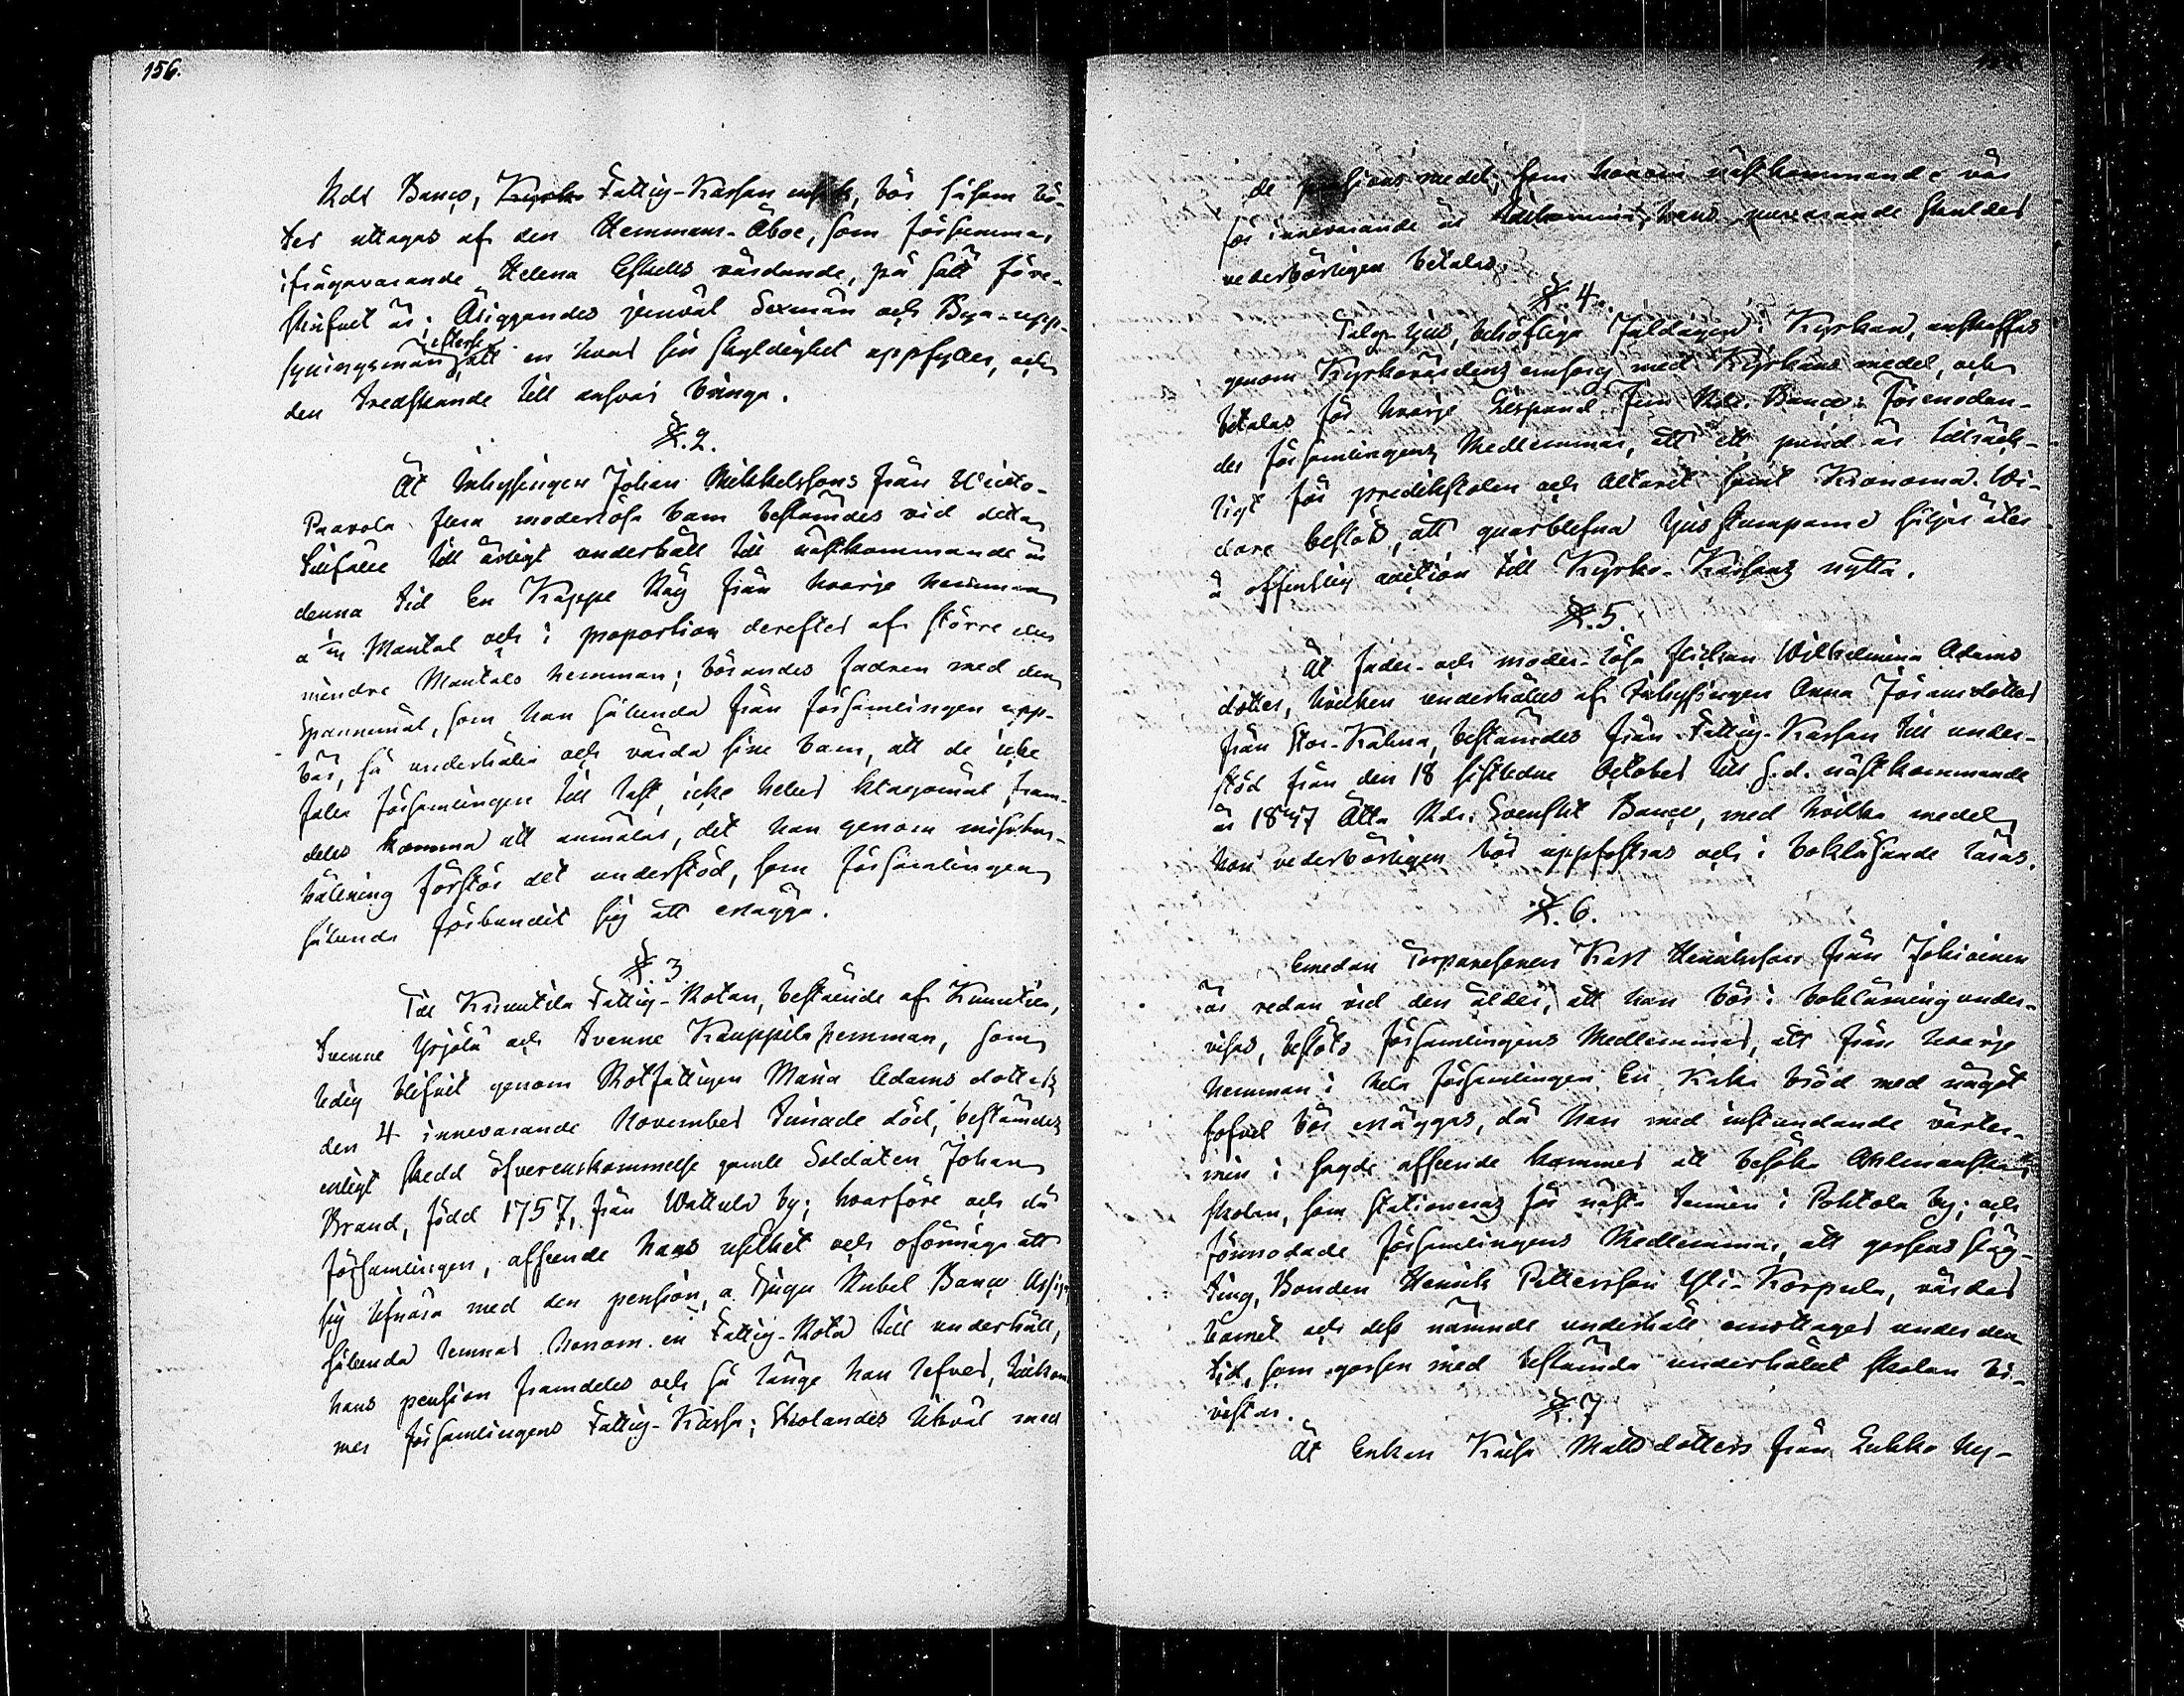 156.
Rdr Banco, Kyrko Fattig-Kassan enskildt, bör såsom bö-
ter uttagas af den Hemmans-Åboe, som försummar
ifrågavarande Helena Eskels vårdande, på sätt före-
skrifvet är; Åliggandes jemväl Sexmän och Bya-upp-
syningsmän efterse
att en hvar sin skyldighet uppfyller, och
den tredskande till ansvar bringa.
§. 2.
Åt Inhysingen Johan Mikkelssons från
Paavola flera moderlösa barn bestämdes vid detta
tillfälle till årligt underhåll till nästkommande år
denna tid En Kappe Råg från hvarje hemman
a Mantal och i proportion derefter af större eller
mindre Mantals hemman; börandes fadren med den
Spannemål, som han sålunda från församlingen upp-
bär, så underhålla och vårda sine barn, att de icke
falla församlingen till last, icke heller klagomål fram-
deles komma att anmälas, det han genom misshus-
hållning förstör det understöd, som församlingen
sålunda förbundit sig att erlägga.
§. 3
Till Knuutila Fattig-Rotan, bestående af Knuutila,
Tvenne Yrjölä och Tvenne Kauppila hemman, som
ledig blifvit genom Rotfattigen Maria Adamsdotters
den 4 innevarande November timade död, bestämdes
enligt skedd öfverenskommelse gamle Soldaten Johan
Brand, född 1757, från Wattula by; hvarföre och då
församlingen, afseende hans uselhet och oförmåga att
sig lifnära med den pension, a Rubel Banco Assign,
sålunda lemnar honom en Fattig-Rota till underhåll,
hans pension framdeles och så länge han lefver, tillkom-
mer församlingens Fattig-Kassa; Skolandes likväl med
de pensions medel, som honom nästkommande vår
för innevarande år tillkommer, hans nuvarande skulder
vederbörligen betalas.
§. 4.
Talg-ljus, behöflige Juldagen i Kyrkan, anskaffas
genom Kyrkovärdens omsorg med Kyrkans medel, och
betalas för hvarje Lispund Fem Rdr. Banco: Förmodan-
der församlingens Medlemmar, att ett pund är tillräck-
ligt för predikstolen och Altaret samt Kronorna. Vi-
dare beslöts, att qvarblefna ljusstumparne säljes
å offentlig auction till Kyrko-Kassans nytta.
§. 5.
Åt fader- och moder-lösa flickan Wilhelmina Adams
dotter, hvilken underhålles af Inhysingen Anna Göransdotter
från Stor-Kalma, bestämdes från Fattig-Kassan till under-
stöd från den 18 sistledne October till s.d. nästkommande
år 1847 Åtta Rdr. Svenskt Banco, med hvilka medel
hon vederbörligen bör uppfostras och i bokläsande läras.
§. 6.
Emedan Torparesonen Karl Henriksson från Johioinen
är redan vid den ålder, att han bör i bokläsning under-
visas, beslöts församlingens Medlemmar, att från hvarje
hemman i hela församlingen En Kaka bröd med något
sofvel bör erläggas, då han med instundande vårter-
min i sagde afseende kommer att besöka Ahlmanska
skolan, som stationeras för nästa Termin i Pohtola by; och
förmodade församlingens Medlemmar, att gossens släg-
ting, Bonden Henrik Pettersson Yli-Korpula, vårdar
barnet och dess nämnde underhåll emottager under den
tid, som gossen med bestämda underhållet skolan bi-
vistar.
§. 7
Åt Enkan Kaisa Mattsdotters från Lukko Ny-